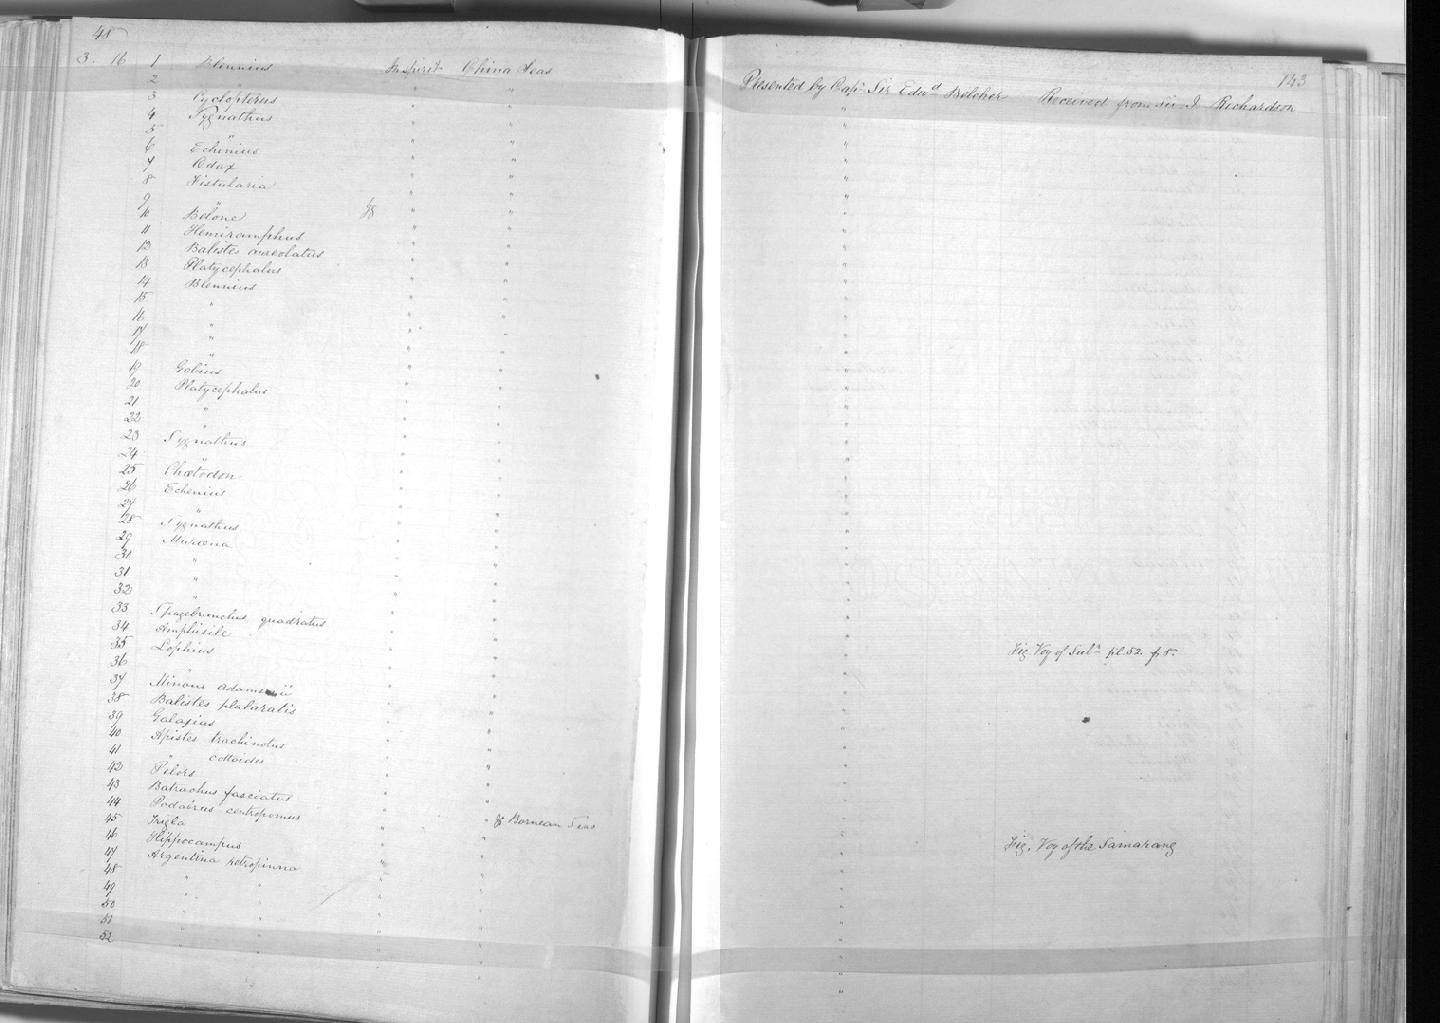 48 143
3. 16 1 Blennius In spirit China Seas Presented by Capt. Sir Edwd Belcher Received from Sir J. Richardson
2 " " "
3 Cyclopterus " " "
4 Sygnathus " " "
5 " " " "
6 Echinius " " "
7 Odax " " "
8 Fistularia " " "
9 " " " "
10 Belone " " "
11 Hemiramphus " " "
12 Balistes areolatus " " "
13 Platycephalus " " "
14 Blennius " " "
15 " " " "
16 " " " "
17 " " " "
18 " " " "
19 Gobius " " "
20 Platycephalus " " "
21 " " " "
22 " " " "
23 Sygnathus " " "
24 " " " "
25 Chætodon " " "
26 Echenius " " "
27 " " " "
28 Sygnathus " " "
29 Muræna " " "
30 " " " "
31 " " " "
32 " " " "
33 quadratus " " "
34 Amphisile " " "
35 Lophius " " " Fig Voy of Sulr pl. 52. f
36 " " " "
37 Minous adamsii " " "
38 Balistes " " "
39 Galaxias " " "
40 Apistes trachinotus " " "
41 " cottoides " " "
42 " " "
43 Batrachus fasciatus " " "
44 Podabrus centropomus " " "
45 Trigla " " Bornean Seas " Fig. Voy of the Samarang
46 Hippocampus " " "
47 Argentina retropinna " " "
48 " " " " "
49 " " " " "
50 " " " " "
51 " " " " "
52 " " " " "